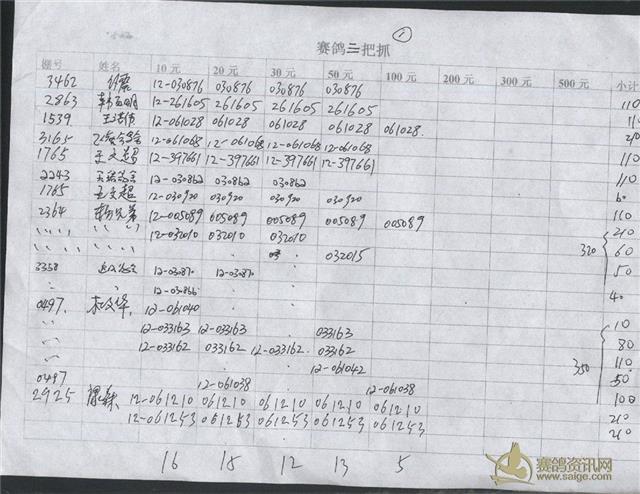 ①
赛鸽三把抓
棚号 姓名 10 元 20 元 30 元 50 元 100 元 200 元 300 元 500 元 小计
3462 12-030876 030876 030876 030876 110
2863 12-261605 261605 261605 261605 110
1539 12-061028 061028 061028 061028 061028. 210
3165 12-061068 12-061068 12-061068 12-061068 110
1765 王文超 12-397661 12-397661 12-397661 12-397661 110
2243 12-030862 030862 030862 60
1765 王文超 12-030920 030920 030920 030920 110
2364 12-005089 005089 005089 005089 005089 210
〃 〃 〃 12-032010 032010 032010 320 60
〃 〃 〃 032015 50
3358 12-03087 12-03087 40
12-030866
0497. 12-061040 10
〃 12-033163 12-033163 033163 80
〃 12-033162 033162 12-033162 033162 110
〃 12-061042 350 50
0497 12-061038 12-061038 100
2925 12-061210 061210 061210 061210 061210 210
12-061253 061253 061253 061253 061253 210
16 18 12 13 5
赛鸽资讯网
www.saige.com